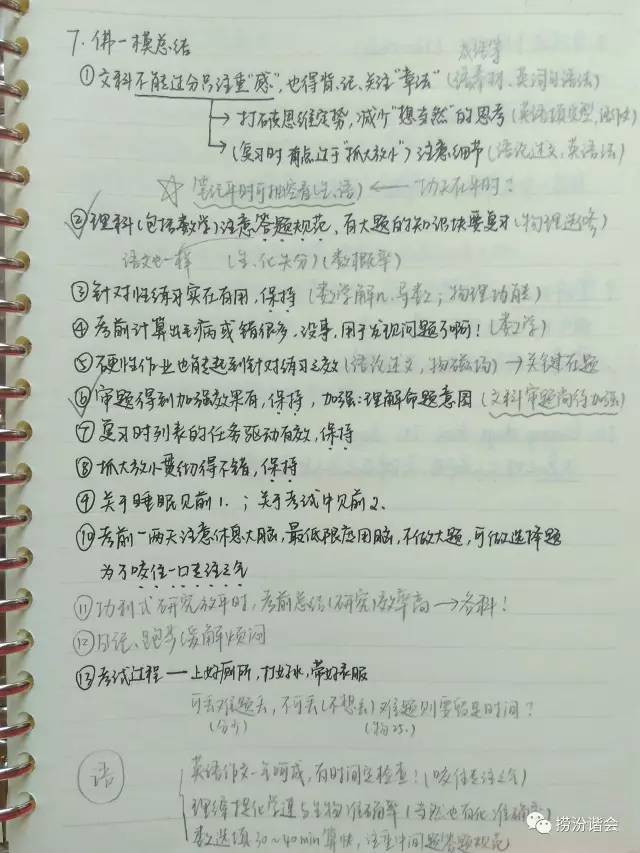 7. 佛一模总结
成语等
① 文科不能过分只注重"感", 也得背、记、关注"章法" (语素材、英词句语法)
→ 打破思维定势, 减少"想当然"的思考 (英语填空型, 语作文)
→ (复习时有点过于"抓大放小") 注意细节 (语论述文, 英语法)
☆ 笔记平时可抽空看(生、语) ← 功夫在平时?
② 理科(包括数学)注意答题规范, 有大题的知识块要复习 (物理选修)
语文也一样 (生、化失分) (数概率)
③ 针对性练习实在有用, 保持 (数学解几、导数; 物理功能)
④ 考前计算出毛病或错很多, 没事, 用于发现问题了啊! (数学)
⑤ 硬性作业也能起到针对练习之效 (语论述文, 物磁场) → 关键在题
⑥ 审题得到加强效果有, 保持, 加强: 理解命题意图 (文科审题尚待加强)
⑦ 复习时列表的任务驱动有效, 保持
⑧ 抓大放小贯彻得不错, 保持
⑨ 关于睡眠见前1. ; 关于考试中见前2.
⑩ 考前一两天注意休息大脑, 最低限度用脑, 不做大题, 可做选择题
为了咬住一口专注之气
⑪ 功利式研究放平时, 考前总结(研究)效率高 → 各科!
⑫ 日记、跑步缓解烦闷
⑬ 考试过程 — 上好厕所, 打好水, 带好衣服
可丢难题丢, 不可丢(不想丢)难题则要留足时间?
(分少) (物25.)
语
英语作文一气呵成, 有时间定检查! (咬住专注之气)
理综提化学速与生物准确率 (当然也有化准确率)
数选填30~40min算快, 注重中间题答题规范
捞汾谐会